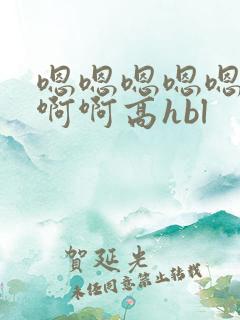 嗯嗯嗯嗯嗯
啊啊高hbl
賀延光
未经同意禁止转载